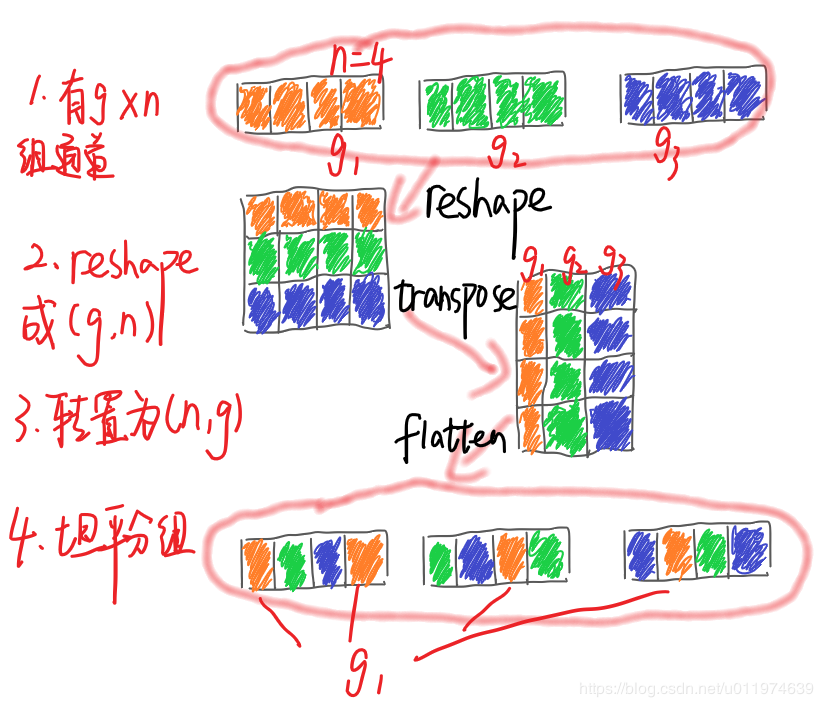 n=4
1. 有g×n
组通道
g1
g2
g3
reshape
2. reshape
成(g,n)
transpose
g1 g2 g3
3. 转置为(n,g)
flatten
4. 坦平分组
g1
https://blog.csdn.net/u011974639